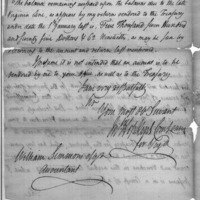 The balance remaining unpaid upon the balance due to the late
Virginia Line, as appears by my return rendered to the Treasury
under date the 1st January last is Five Thousand four hundred
and seventy five Dollars & 62 Hundredths, as may be seen by
recurring to the account and return last mentioned.
it is not intended that an account is to be
rendered by me to your office as well as to the Treasury.
I am very respectfully
Sir
Your most Obt Servant
for
William Simmons Esqr
Accountant